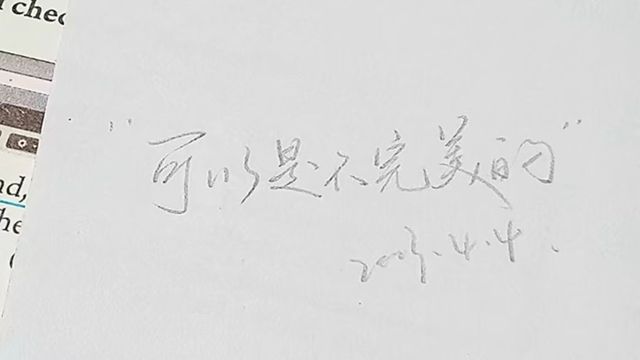 d chec
nd,
he
"可以是不完美的"
2023.4.4.